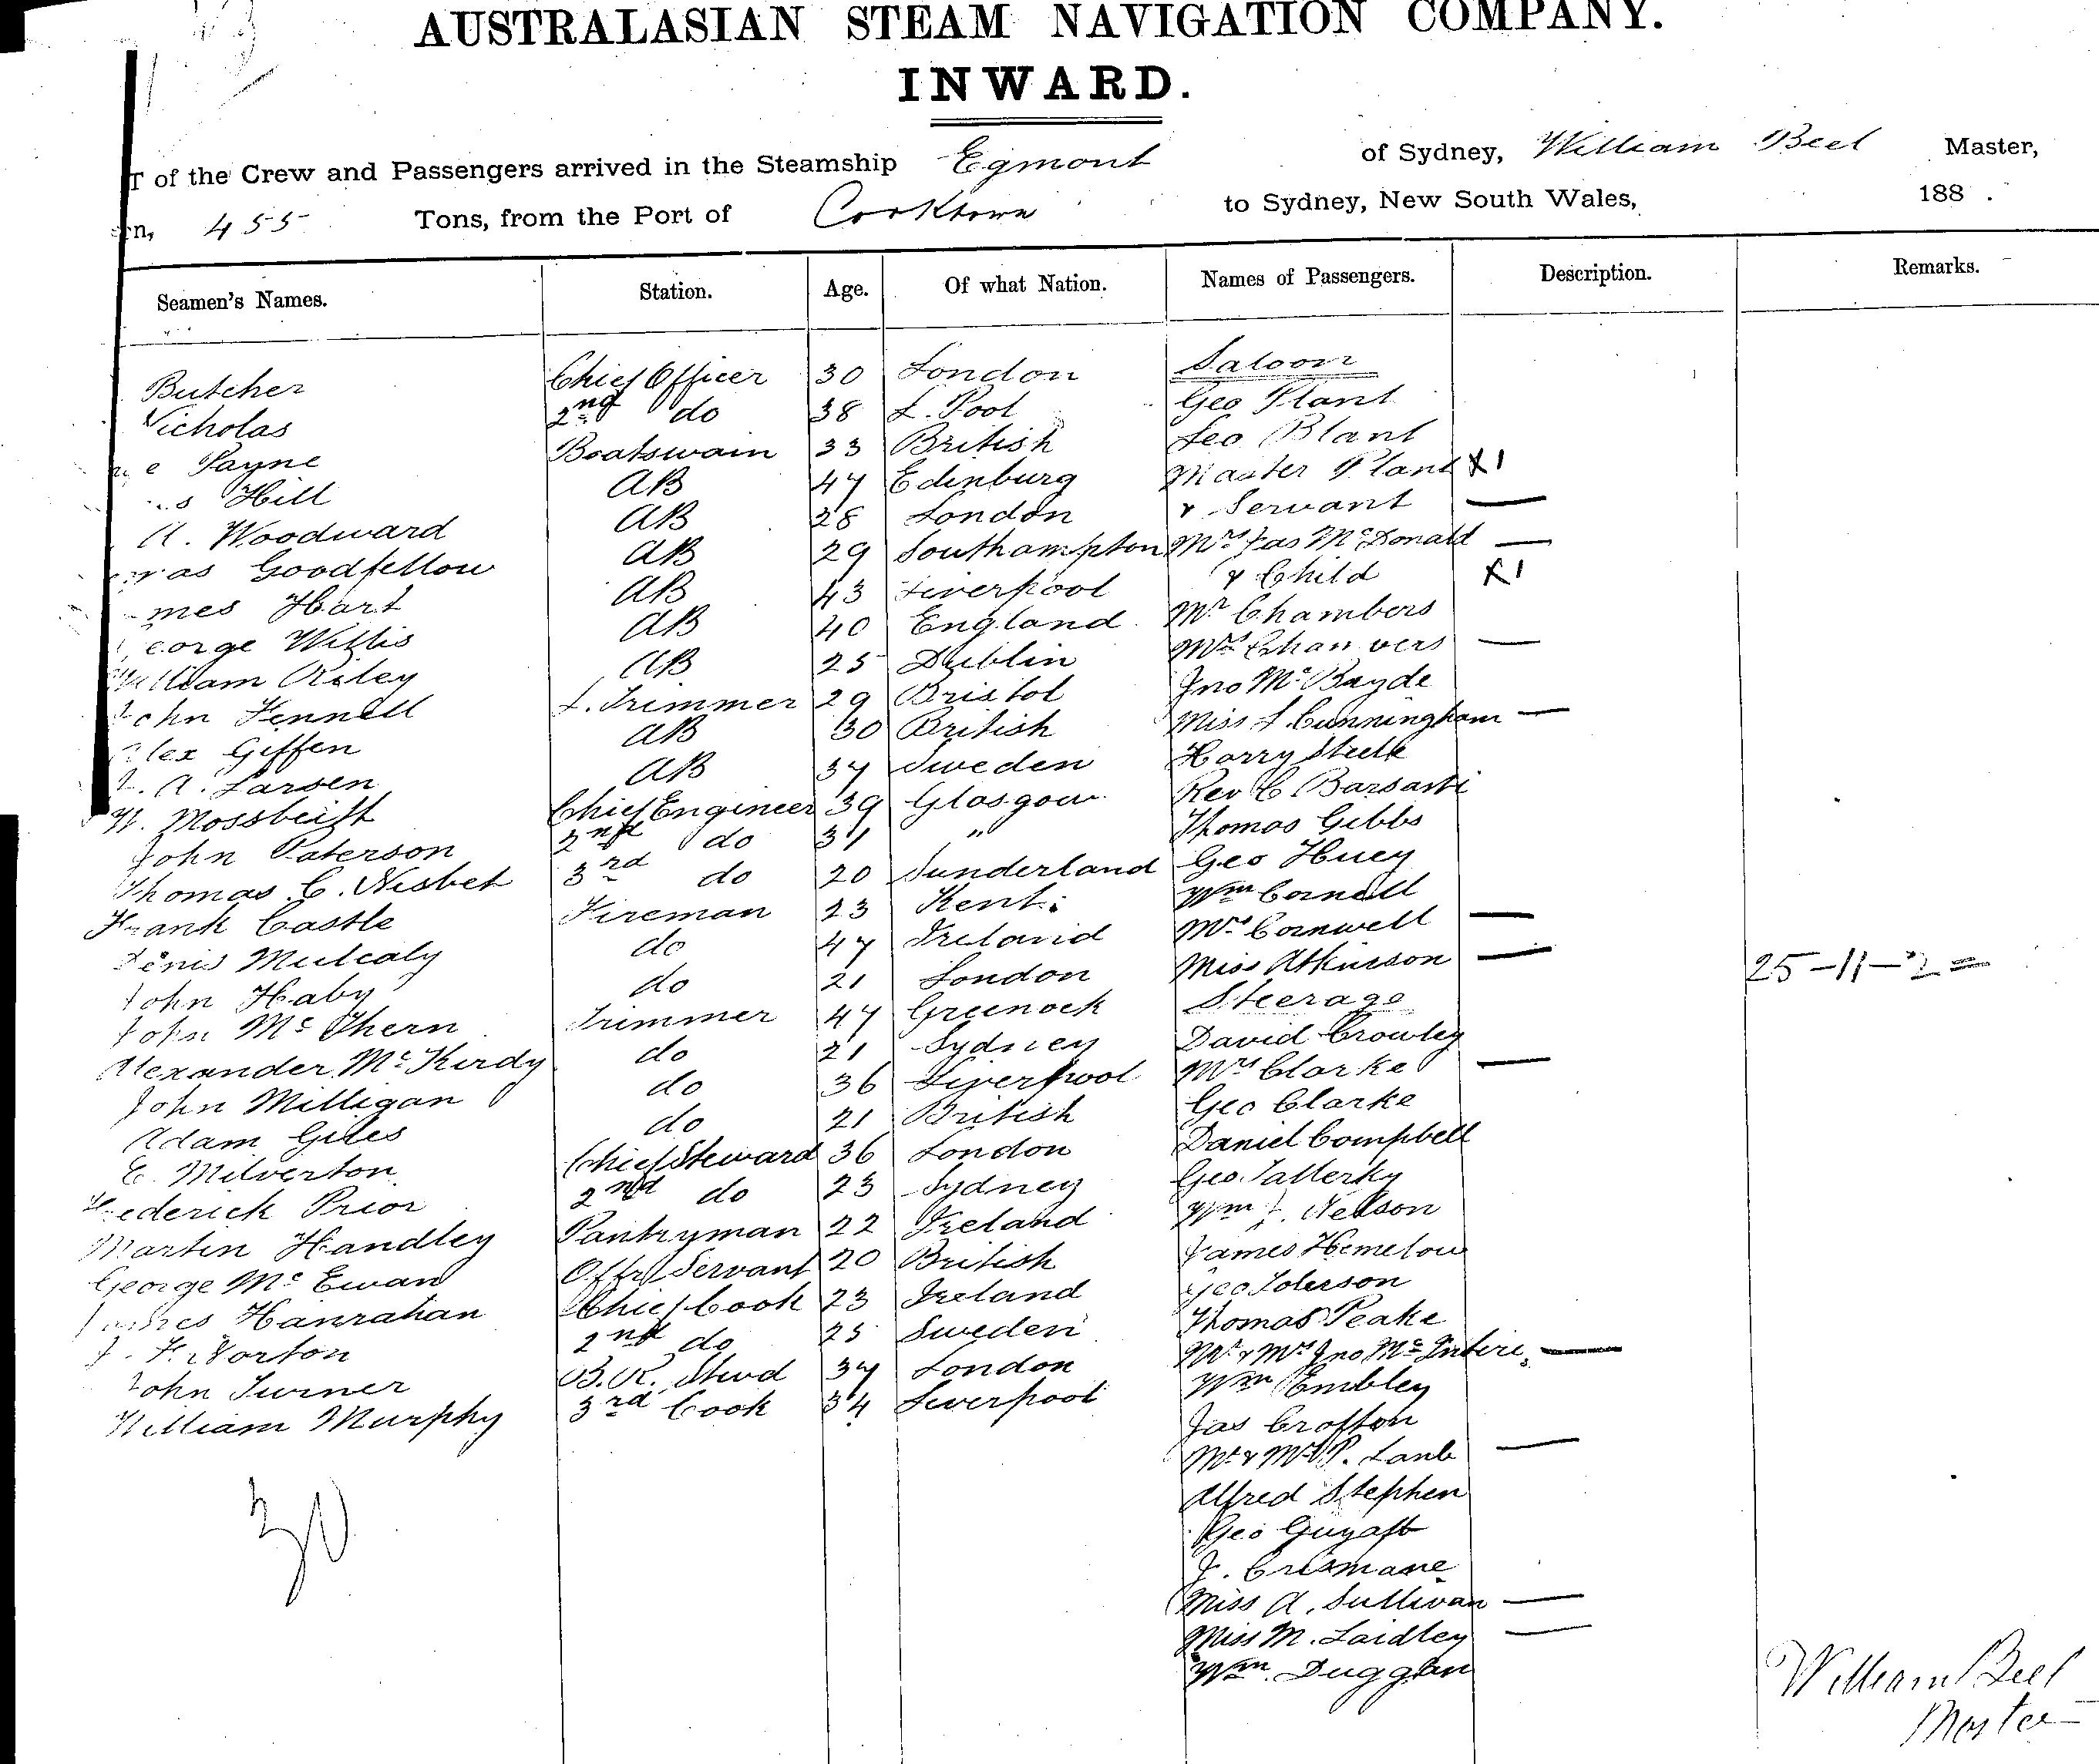 AUSTRALASIAN STEAM NAVIGATION COMPANY.
INWARD.
T of the Crew and Passengers arrived in the Steamship Egmont of Sydney, William Beel Master,
n, 455 Tons, from the Port of Cooktown to Sydney, New South Wales, 188 .
Seamen's Names. Station. Age. Of what Nation. Names of Passengers. Description. Remarks.
Saloon
Butcher Chief Officer 30 London Geo Plant
Nicholas 2nd do 38 L. Pool Leo Blant
e Payne Boatswain 33 British Master Plant X1
s Hill AB 47 Edinburg & Servant —
A. Woodward AB 28 London Mrs Jas McDonald —
as Goodfellow AB 29 Southampton & Child X1
mes Hart AB 43 Liverpool Mr Chambers
eorge Willis AB 40 England Mrs —
William Riley AB 25 Dublin Jno
John Fennell L. Trimmer 29 Bristol Miss Cunningham —
Alex Giffen AB 30 British Harry
A. Larsen AB 37 Sweden Rev C
Chief Engineer 39 Glasgow Thomas Gibbs
John Paterson 2nd do " Geo Huey
Thomas C. Nisbet 3rd do 20 Sunderland Wm
Frank Castle Fireman 23 Kent Mrs Cornwell —
Denis Mulcaly do 47 Ireland Miss Atkinson — 25-11-2=
John Haby do 21 London Steerage
John Trimmer 47 Greenock David Crowley
Alexander McKirdy do 21 Sydney Mrs Clarke —
John Milligan do 36 Liverpool Geo Clarke
Adam Giles do 21 British Daniel Campbell
E. Milverton Chief Steward 36 London Geo
Frederick Prior 2nd do 23 Sydney Wm Nelson
Martin Handley Pantryman 22 Ireland James
George McEwan Offrs Servant 20 British Geo
James Hanrahan Chief Cook 23 Ireland Thomas Peake
Norton 2nd do 25 Sweden Mr & Mrs Jno —
John Turner B. R. Stwd 37 London Wm Embley
William Murphy 3rd Cook 34 Liverpool Jas Crofton
Mr & Mrs P. —
Alfred Stephen
30 Geo
J.
Miss A. Sullivan —
Miss M. Laidley —
Wm Duggan
William Beel
Master